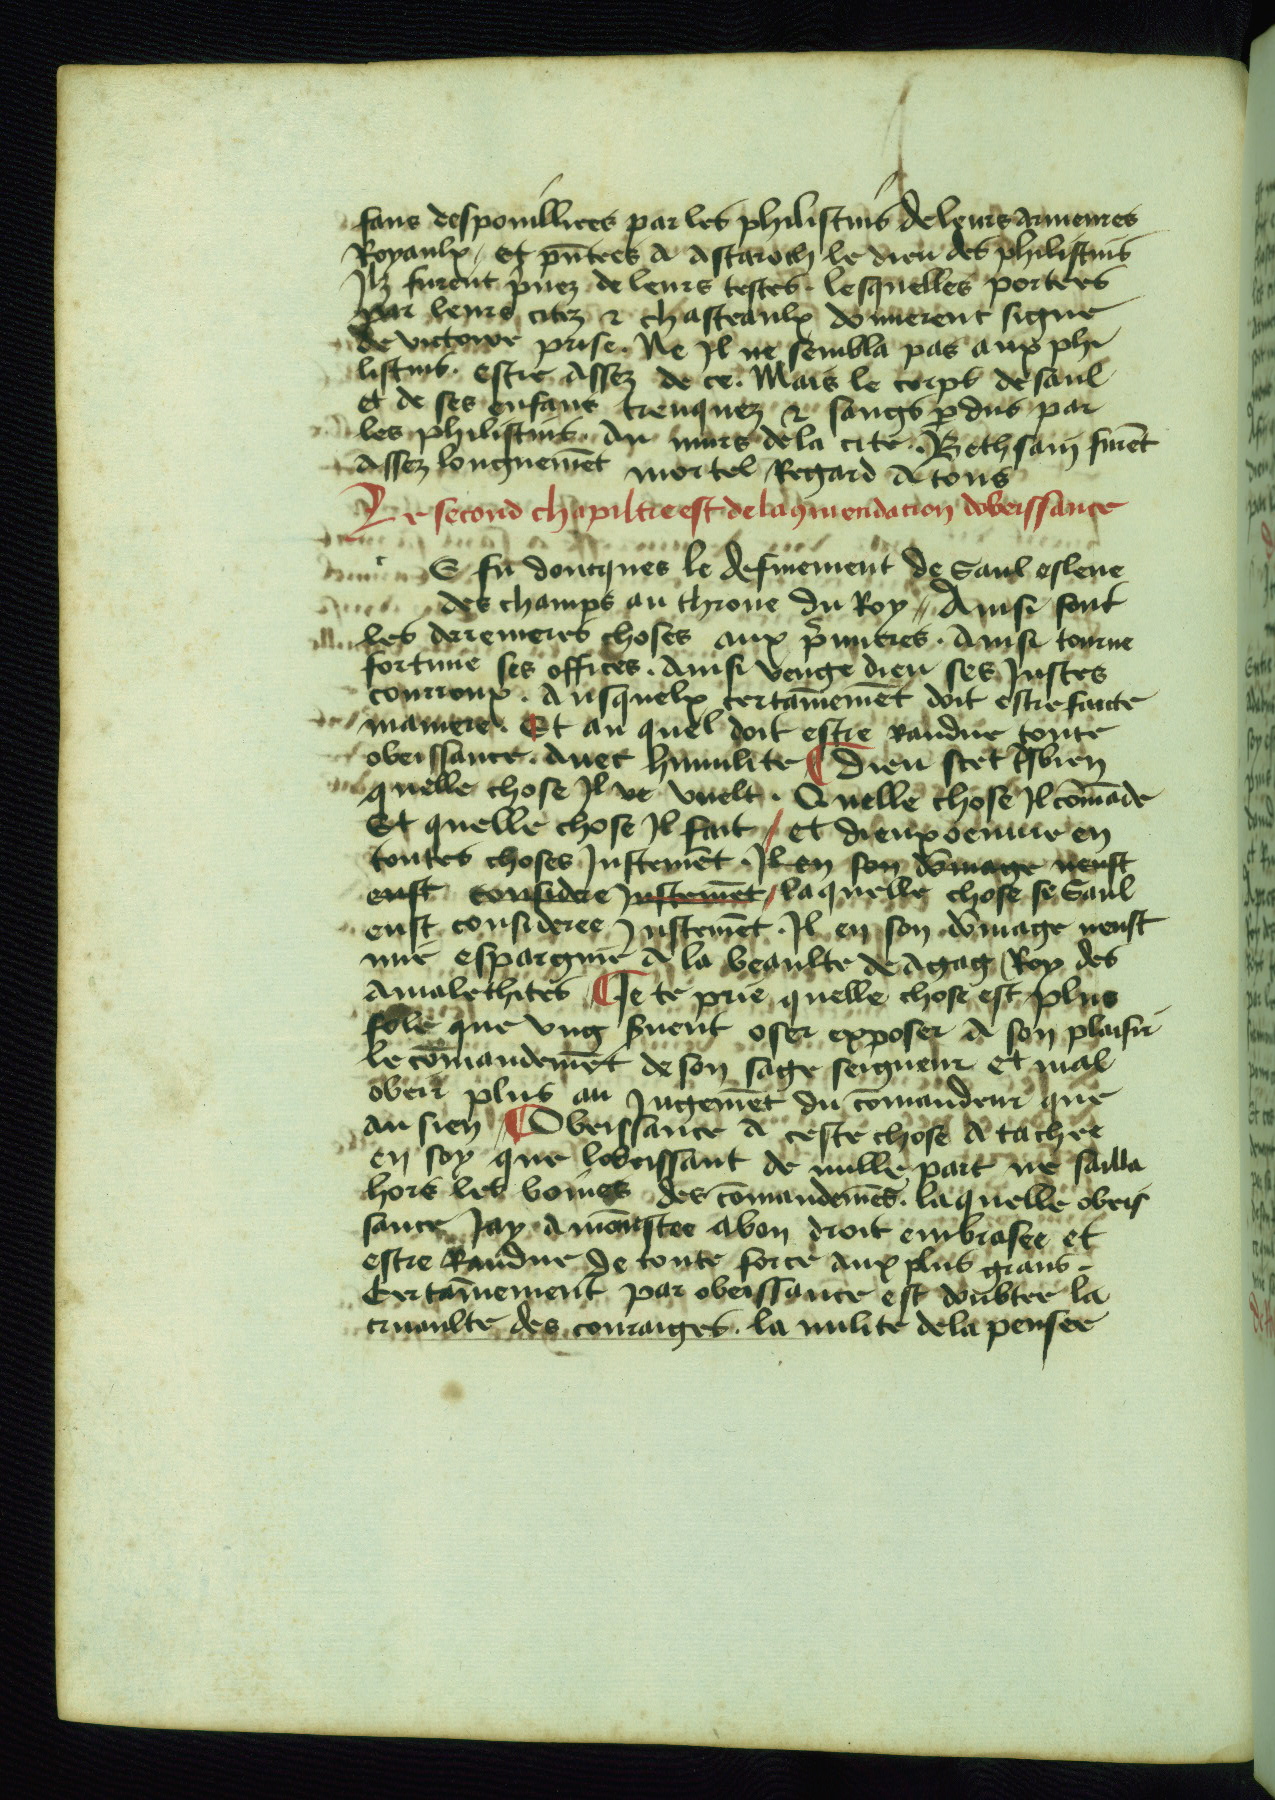 fans despouillies par les philistins de leurs armeures
Royaulx / et pn̄tees a astaroch le dieu des philistins
Ilz furent p̄uez de leurs testes . lesquelles portees
par leurs citez ⁊ chasteaulx donnerent signe
de victoire prise . Ne Il ne sembla pas aux phi
listins . estre assez de ce . Mais le corps de saul
et de ses enfans trenquez ⁊ sangs ꝑdus par
les philistins . Au murs de la cite . Bethsain furēt
assez longuemēt mortel Regard a tous
Le second chapiltre est de la ꝯmendacion dobeissance
E fu doncques le definement de Saul esleue
des champs au throne du Roy // Ainsi sont
les derrenieres choses aux p̄mieres . Ainsi tourne
fortune ses offices . Ainsi venge dieu ses Justes
courroux . Ausquelx certaīnemēt doit estre faicte
maniere . Et au quel doit estre Randue toute
obeissance . auec humilite ¶ Dieu scet tsbien
quelle chose Il ve vuelt . Quelle chose Il cōmāde
Et quelle chose Il fait / et dieux oeuure en
toutes choses Justemēt . Il en son dōmage neust
eust considere Justemēt / la quelle chose se Saul
eust consideree Justemēt . Il en son dōmage neust
mie espargnie a la beaulte de Agag Roy des
Amalethites ¶ Je te prie quelle chose est plus
fole que vng s̄uent oser exposer a son plaisir
le cōmandemēt de son sage seigneur et mal
obeir plus au Jugemēt du cōmandeur que
au sien / ¶ Obeissance a ceste chose atachee
en soy que lobeissant de nulle part ne sailla
hors les bonnes des cōmandemēs . la quelle obeis
sance Jay amōnestee abon droit embrasee et
estre Randue de toute force aux plus grans .
Certaīnement par obeissance est doubtee la
cruaulte des couraiges . la nulite de la pensee